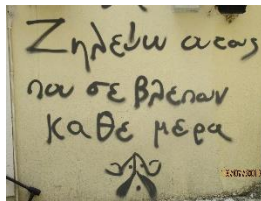 Ζηλεύω αυτους
που σε βλεπουν
καθε μερα